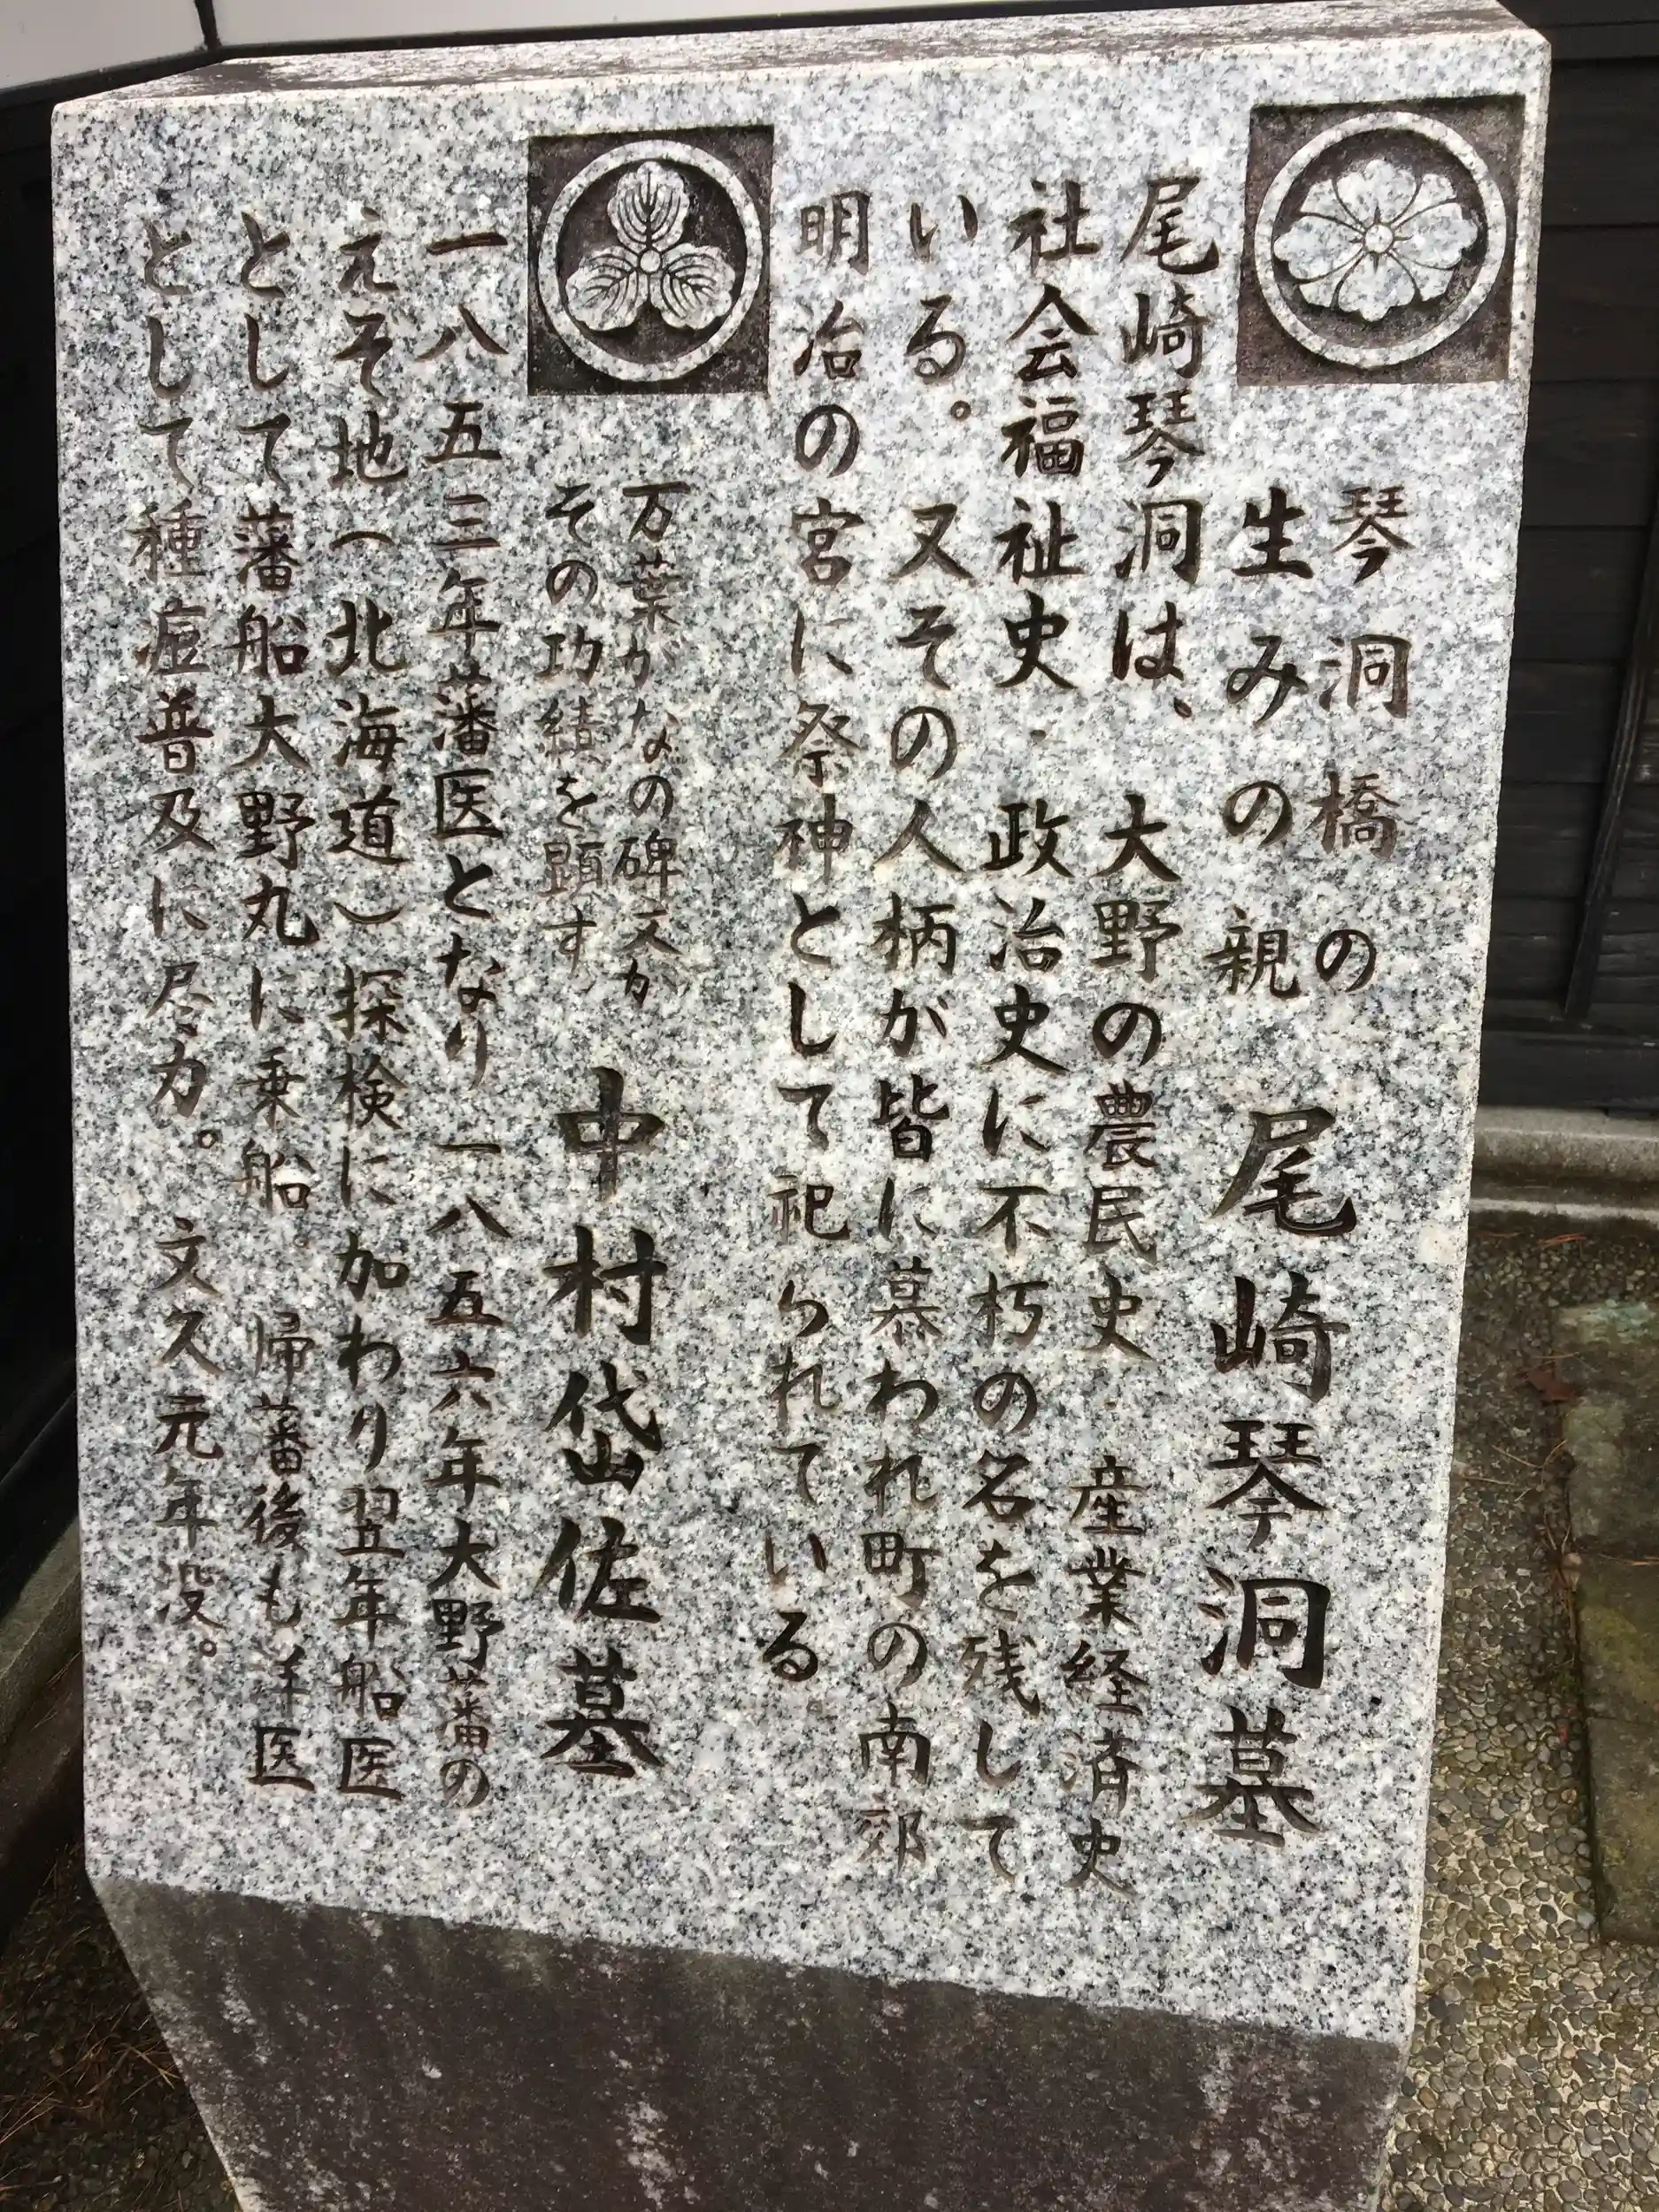 琴洞橋の
生みの親
尾崎琴洞墓
尾崎琴洞は、大野の農民史・産業経済史
社会福祉史・政治史に不朽の名を残して
いる。又その人柄が皆に慕われ町の南郊
明治の宮に祭神として祀られている。
万葉がなの碑文が
その功績を顕す
中村岱佐墓
一八五三年藩医となり一八五六年大野藩の
えぞ地(北海道)探検に加わり翌年船医
として藩船大野丸に乗船。帰藩後も洋医
として種痘普及に尽力。文久元年没。